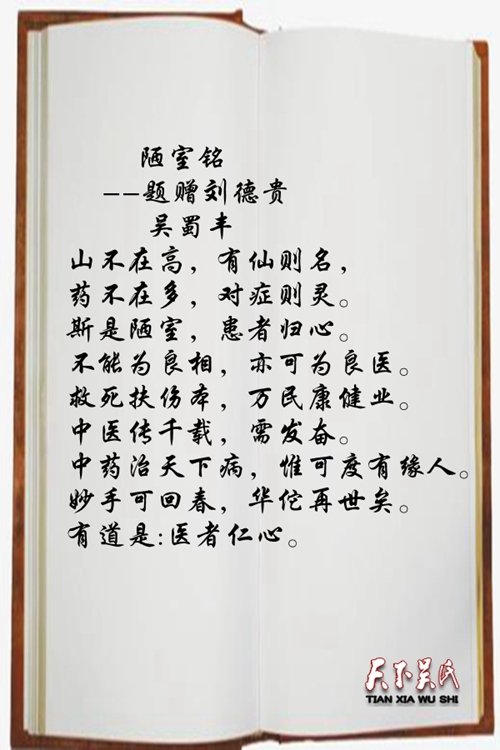 陋室铭
--题赠刘德贵
吴蜀丰
山不在高，有仙则名，
药不在多，对症则灵。
斯是陋室，患者归心。
不能为良相，亦可为良医。
救死扶伤本，万民康健业。
中医传千载，需发奋。
中药治天下病，惟可度有缘人。
妙手可回春，华佗再世矣。
有道是:医者仁心。
天下吴氏
TIAN XIA WU SHI